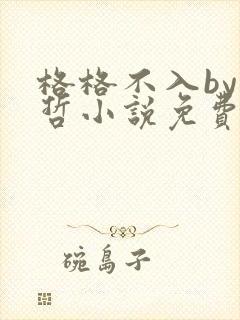 格格不入by
哲小説免費
碗島子